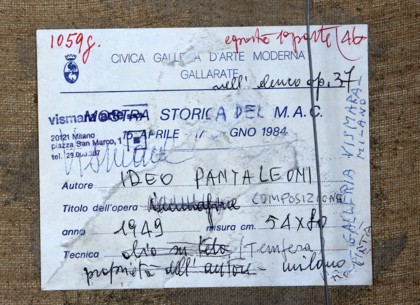 1059g. esposto 1ª parte (46
CIVICA GALLERIA D'ARTE MODERNA
GALLARATE
nell'elenco op. 37
MOSTRA STORICA DEL M.A.C.
15 APRILE GIUGNO 1984
20121 Milano
piazza San Marco, 1
tel.
Autore IDEO PANTALEONI
Titolo dell'opera COMPOSIZIONE
anno 1949 misura cm. 54x80
Tecnica olio su tela / Tempera
proprietà dell'autore milano
GALLERIA VISMARA
MILANO